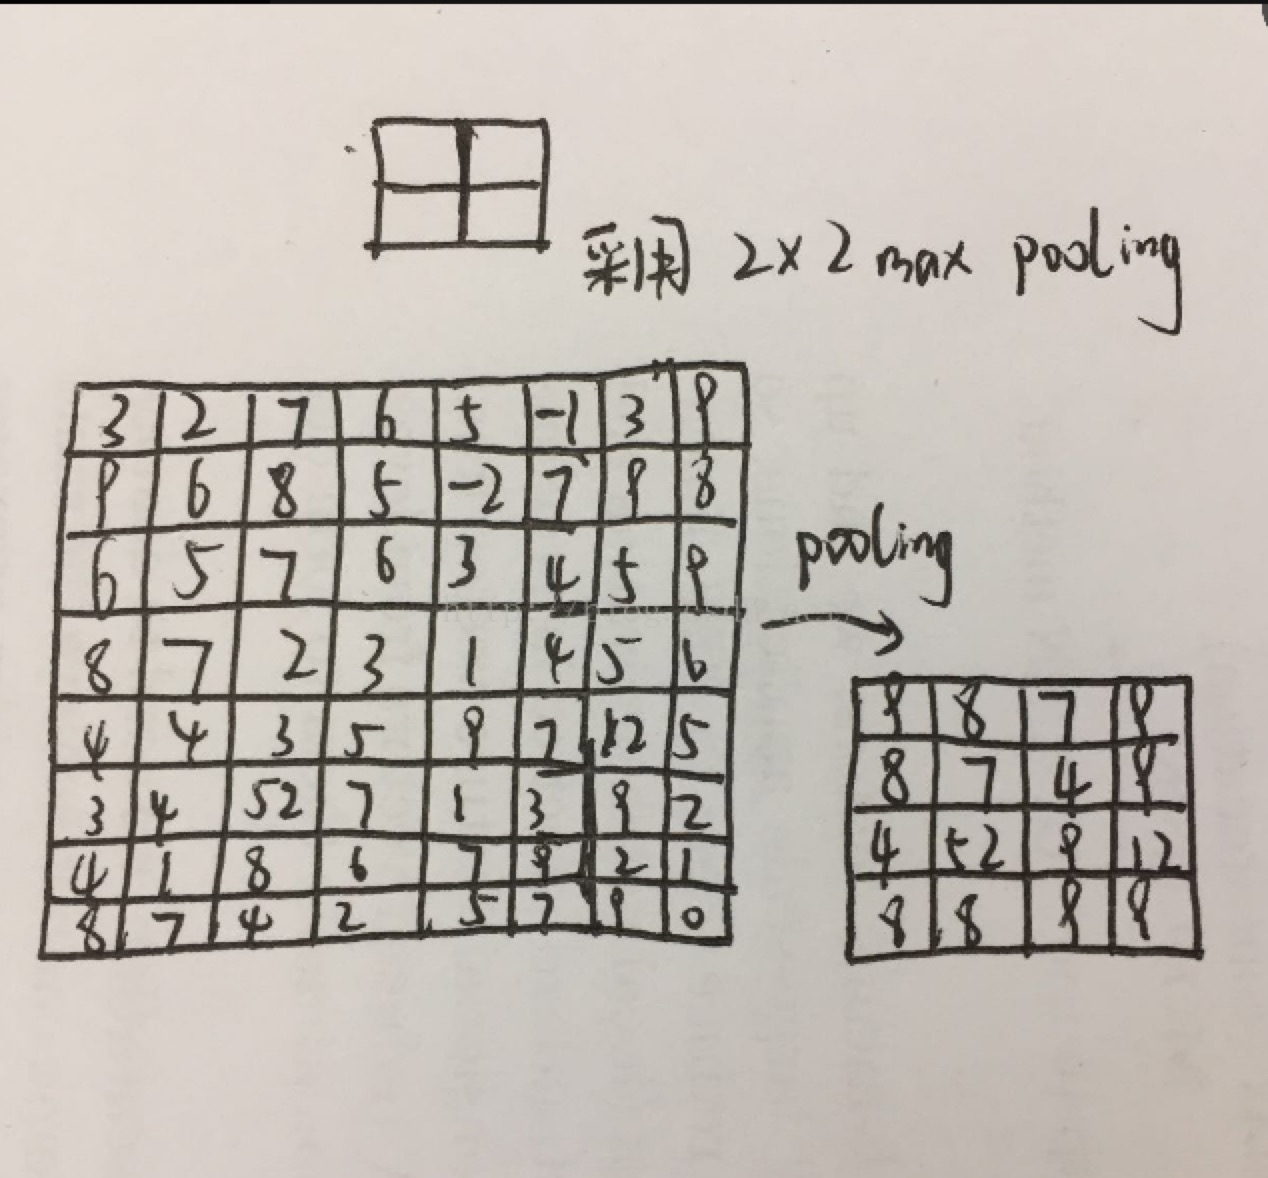 采用 2×2 max pooling
3 2 7 6 5 -1 3 9
9 6 8 5 -2 7 9 8
6 5 7 6 3 4 5 9
8 7 2 3 1 4 5 6
4 4 3 5 9 7 12 5
3 4 52 7 1 3 9 2
4 1 8 6 7 9 2 1
8 7 4 2 5 7 9 0
pooling
9 8 7 9
8 7 4 9
4 52 9 12
8 8 9 9